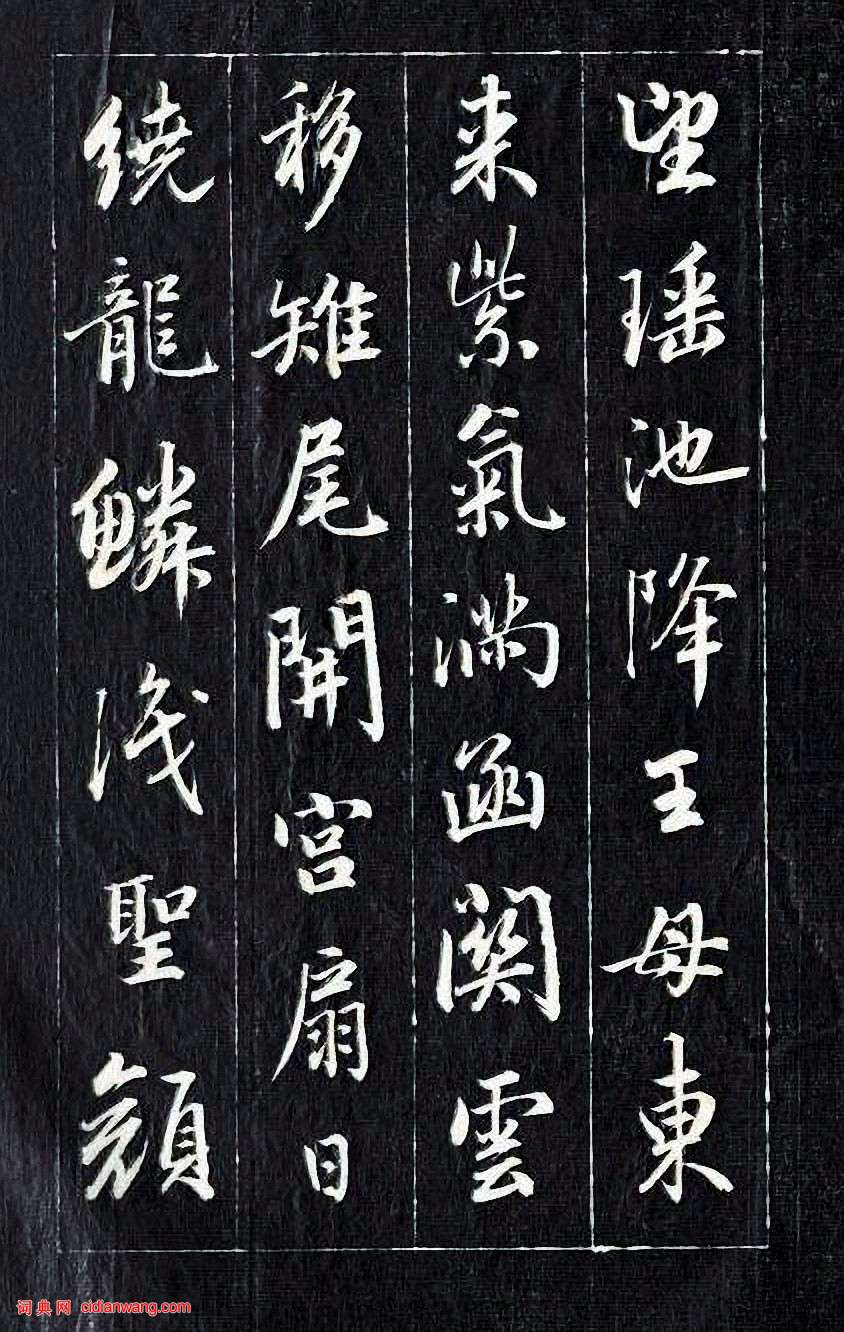 望瑶池降王母東
来紫氣满函関雲
移雉尾開宫扇日
繞龍鱗淺聖顔
词典网 cidianwang.com